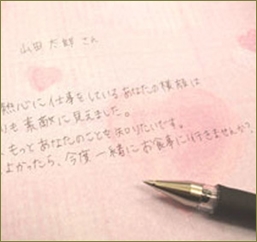 山田太郎さん
熱心に仕事をしているあなたの横顔は
も素敵に見えました。
もっとあなたのことを知りたいです。
よかったら、今度一緒にお食事に行きませんか?